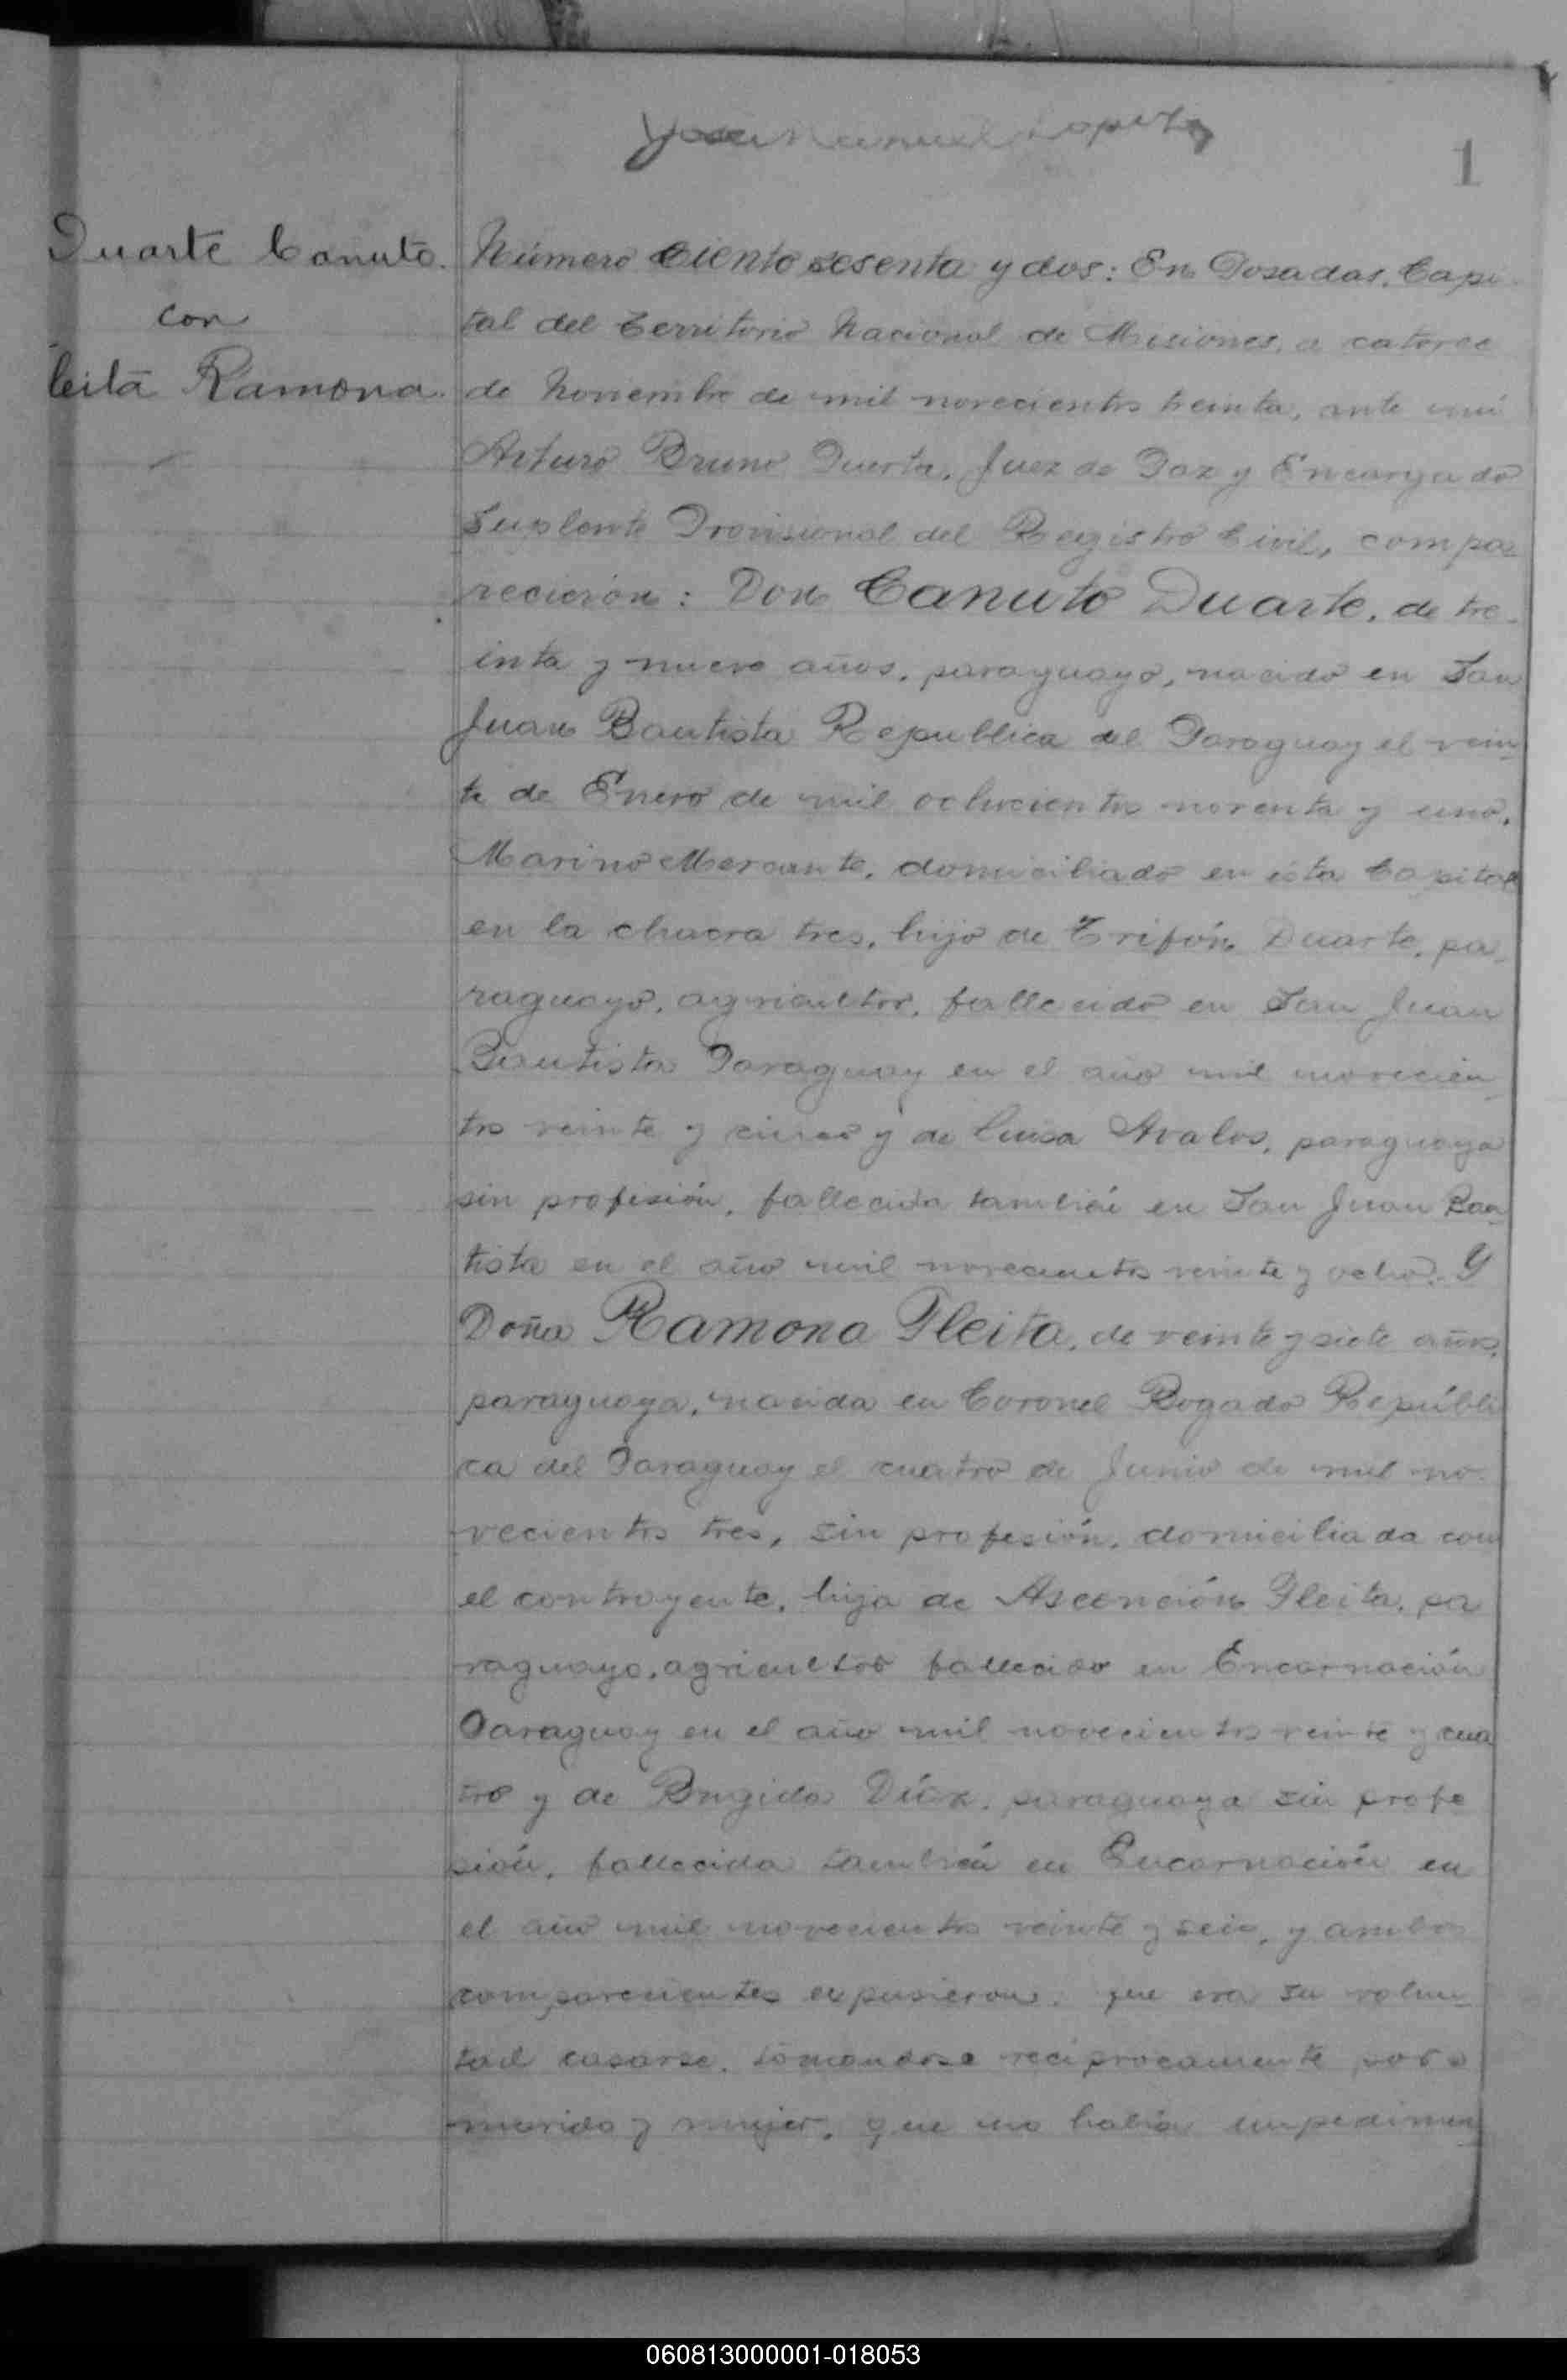 Jose Manuel Lopez
1
Duarte Canuto.
con
leita Ramona.
Número Ciento sesenta y dos: En Posadas, Capi-
tal del Territorio Nacional de Misiones, a catorce
de Noviembre de mil novecientos treinta, ante mi
Arturo Bruno Puerta, Juez de Paz y Encargado
Suplente Provisional del Registro Civil, compa-
recieron: Don Canuto Duarte, de tre-
inta y nueve años, paraguayo, nacido en San
Juan Bautista Republica del Paraguay el vein-
te de Enero de mil ochocientos noventa y uno,
Marino Mercante, domiciliado en ésta Capital
en la chacra tres, hijo de Trifón Duarte, pa-
raguayo, agricultor, fallecido en San Juan
Bautista Paraguay en el año mil novecien-
tos veinte y cinco y de Luisa Avalos, paraguaya
sin profesión, fallecida también en San Juan Bau-
tista en el año mil novecientos veinte y ocho. Y
Doña Ramona Fleita, de veinte y siete años,
paraguaya, nacida en Coronel Bogado Repúbli
ca del Paraguay el cuatro de Junio de mil no-
vecientos tres, sin profesión, domiciliada con
el contrayente, hija de Ascención Fleita, pa
raguayo, agricultor fallecido en Encarnación
Paraguay en el año mil novecientos veinte y cua
tro y de Brigida Díaz, paraguaya sin profe
sión, fallecida también en Encarnación en
el año mil novecientos veinte y seis, y ambos
comparecientes expusieron: que era su volun-
tad casarse, tomandose reciprocamente por
marido y mujer, que no había impedimen-
060813000001-018053